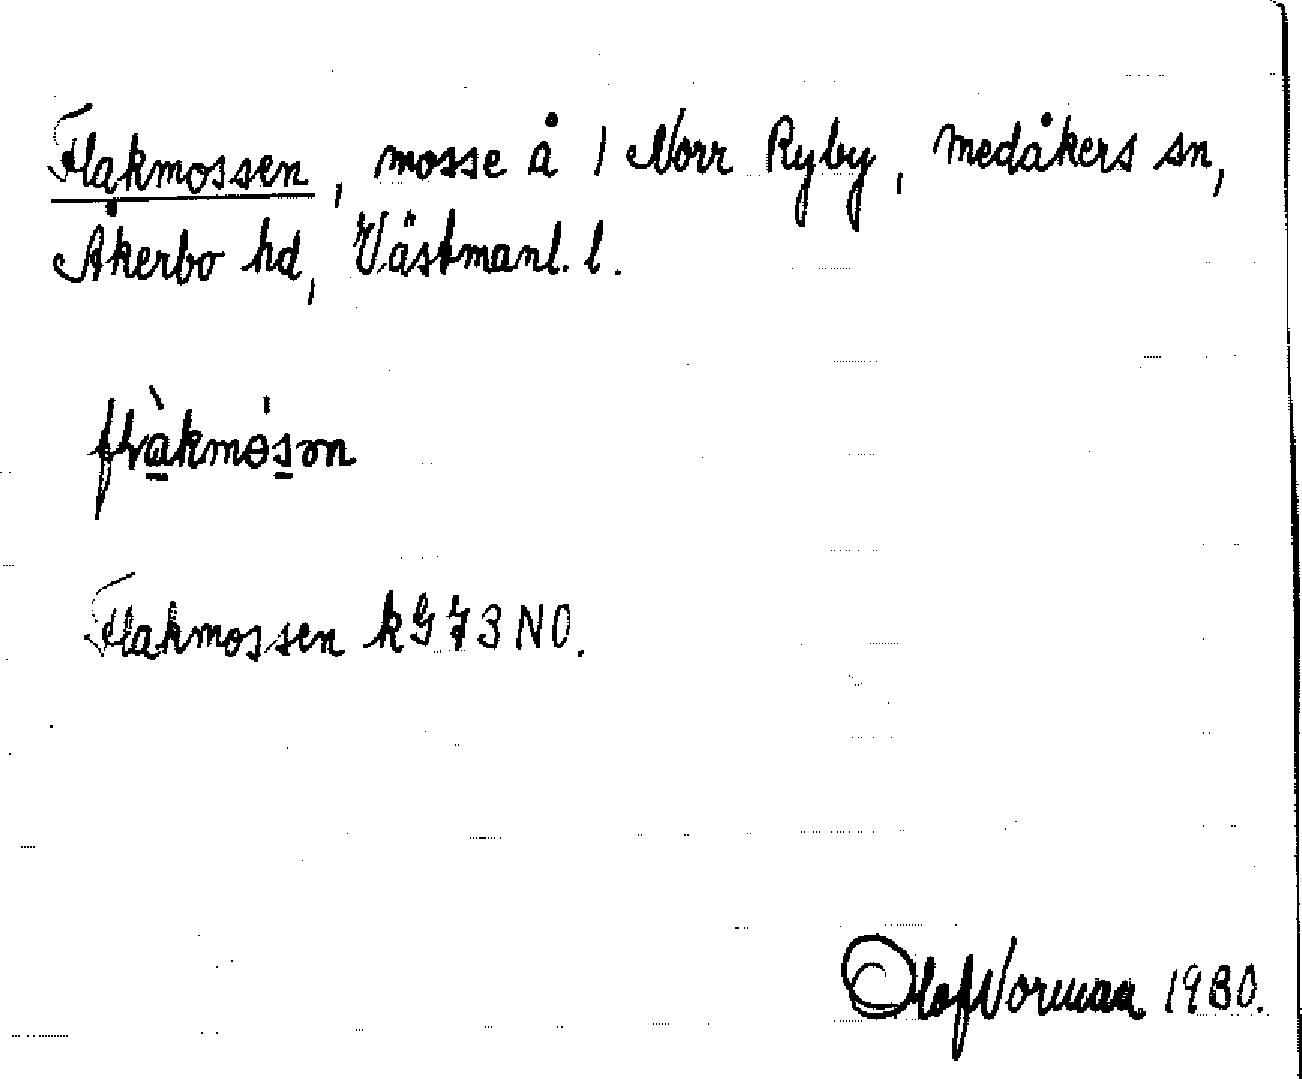 Flakmossen, mosse å 1 Norr Ryby, Medåkers sn,
Åkerbo hd, Västmanl. l.
Flakmossen kG73NO.
Olof Norman 1930.